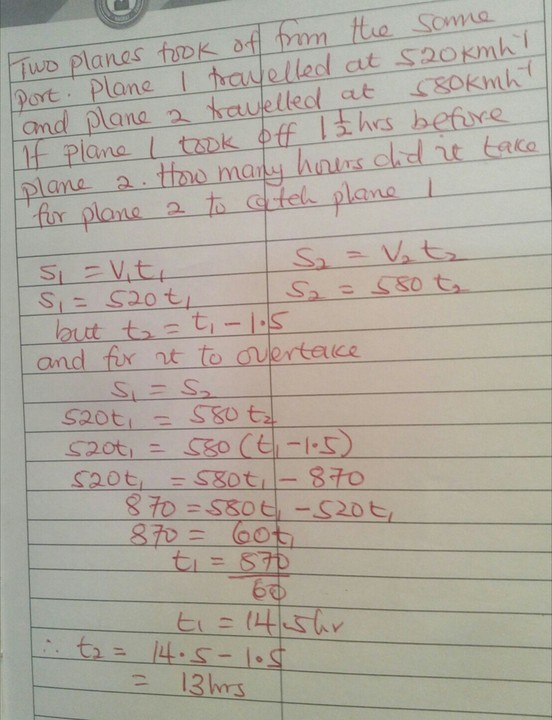 Two planes took of from the same
port. Plane 1 travelled at 520kmh⁻¹
and plane 2 travelled at 580kmh⁻¹
If plane 1 took off 1½hrs before
plane 2. How many hours did it take
for plane 2 to catch plane 1
S₁ = V₁t₁ S₂ = V₂t₂
S₁ = 520t₁ S₂ = 580t₂
but t₂ = t₁ - 1.5
and for it to overtake
S₁ = S₂
520t₁ = 580t₂
520t₁ = 580(t₁-1.5)
520t₁ = 580t₁ - 870
870 = 580t₁ - 520t₁
870 = 60t₁
t₁ = 870
60
t₁ = 14.5hr
∴ t₂ = 14.5 - 1.5
= 13hrs